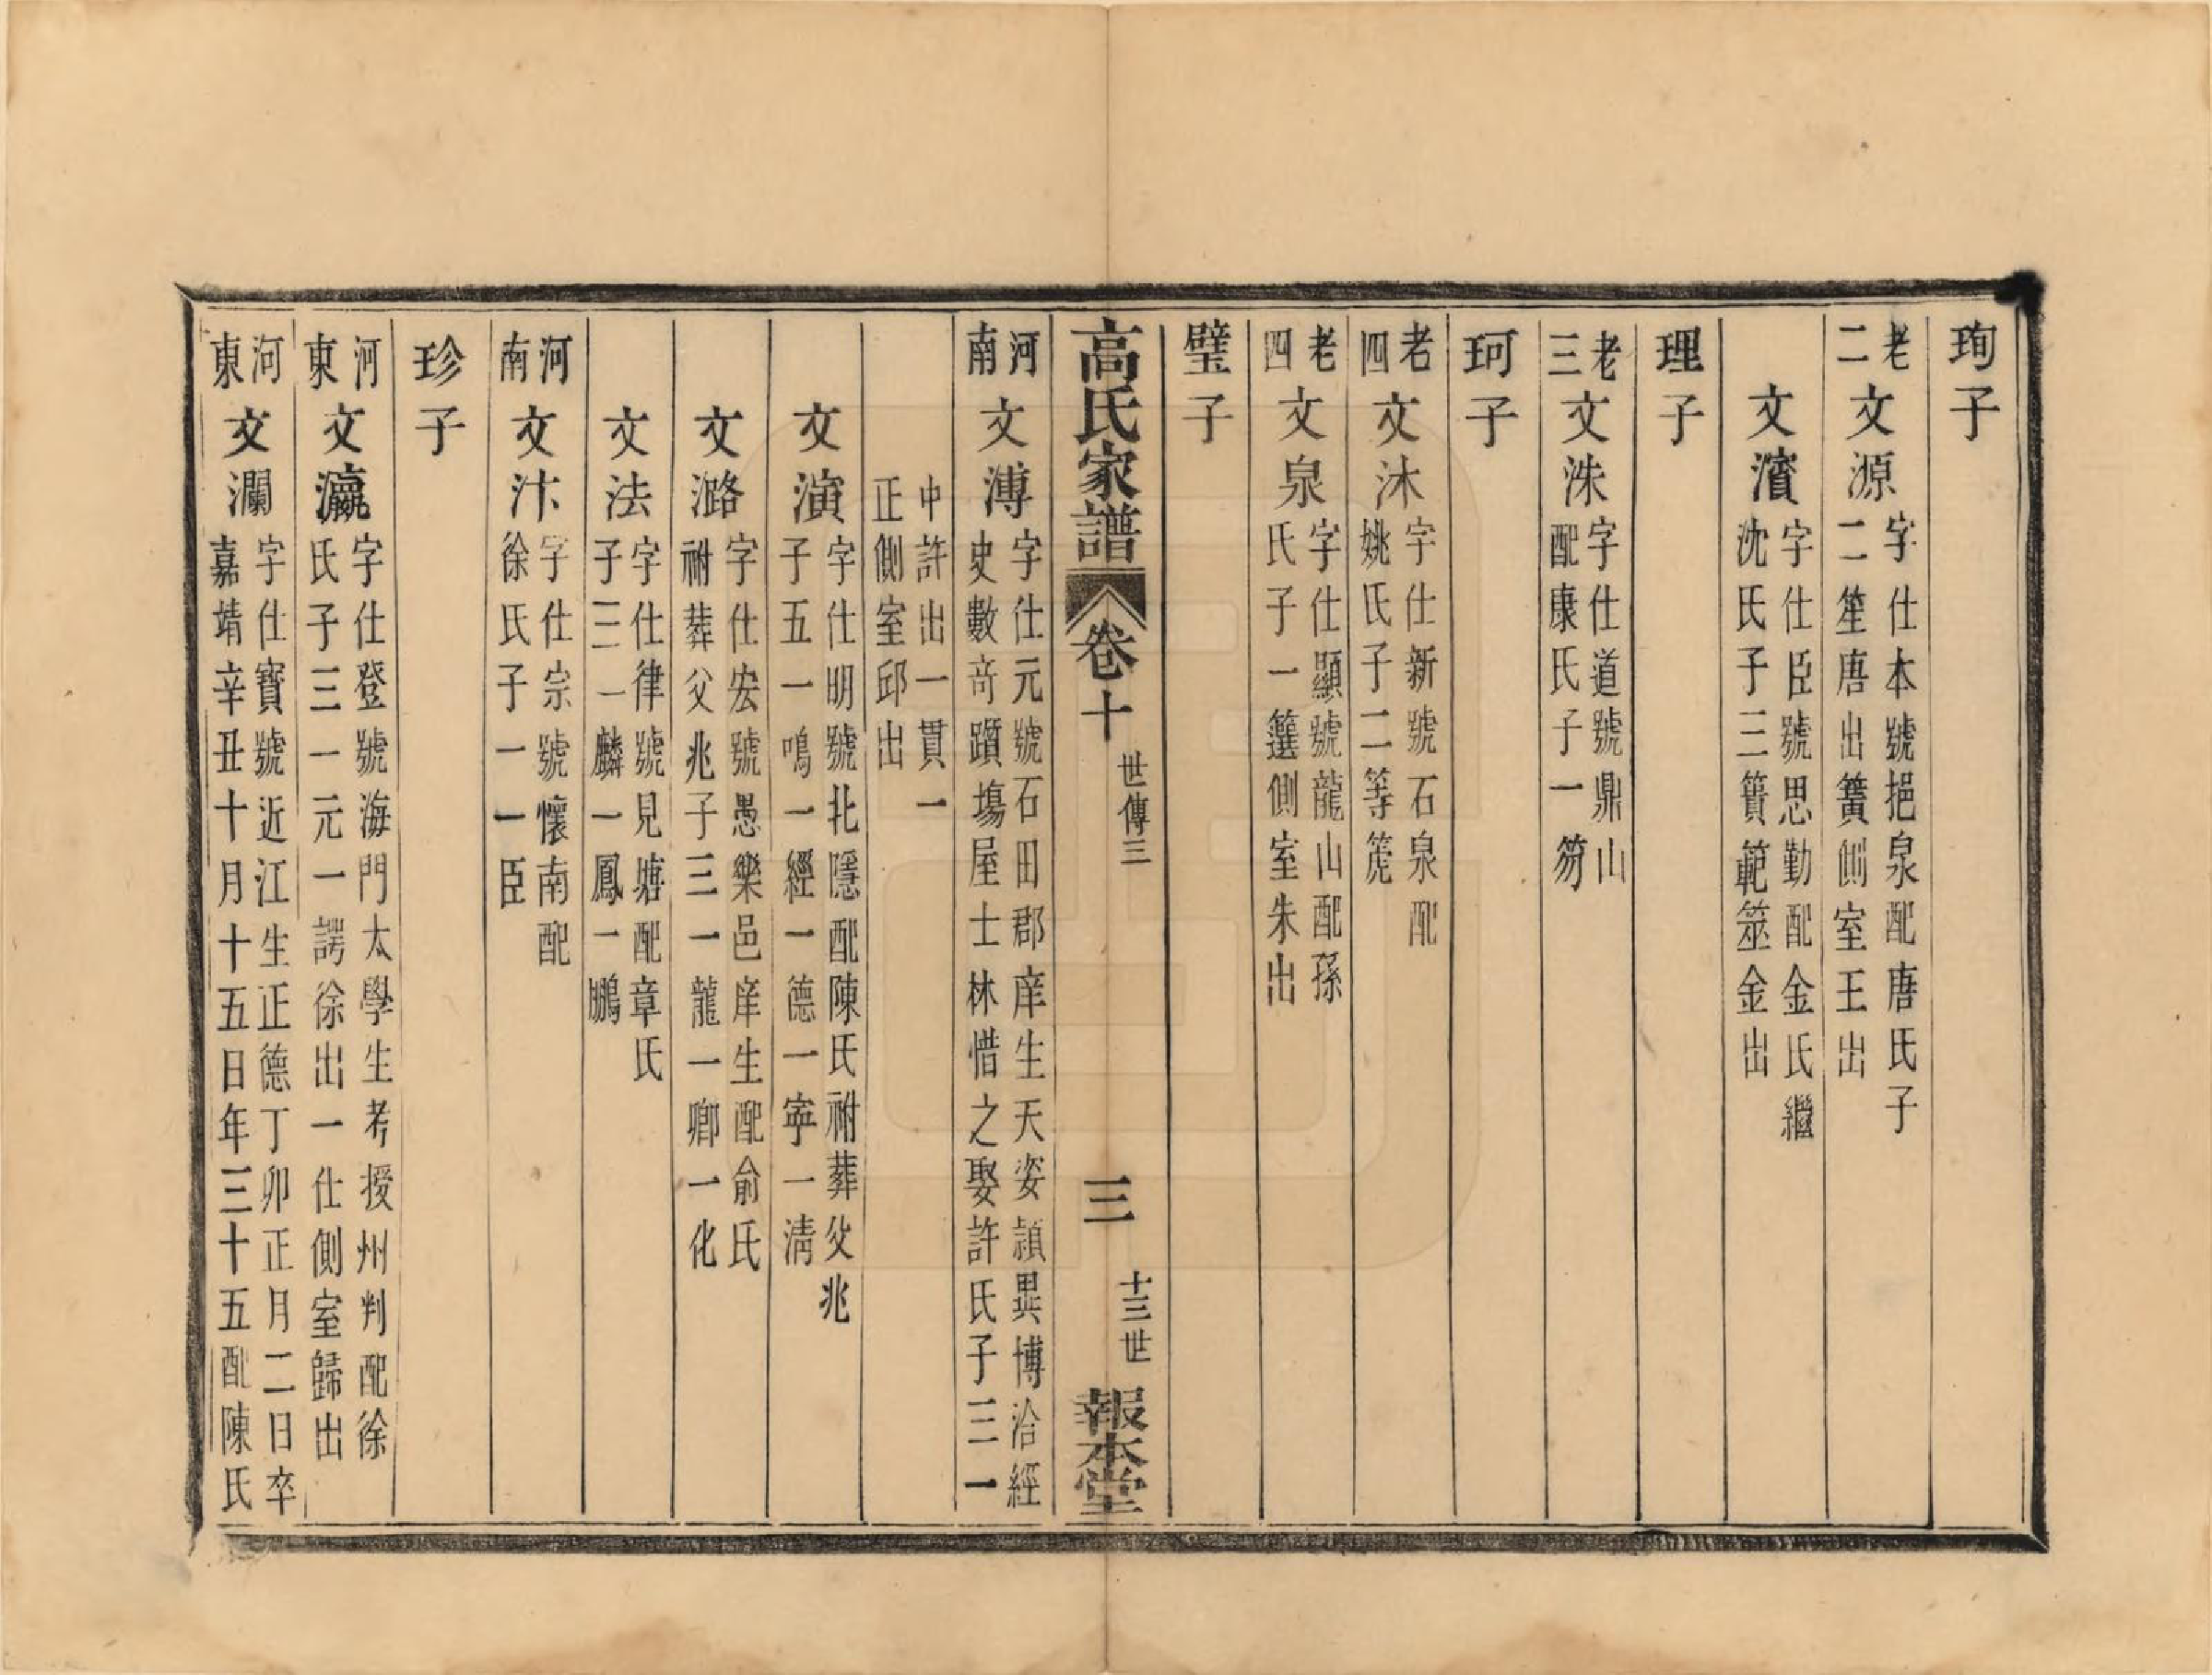 珣子
老二 文源 字仕本號挹泉配唐氏子
二笙唐出簧側室王出
文濱 字仕臣號思勤配金氏繼
沈氏子三簣範筮金出
理子
老三 文洙 字仕道號鼎山
配康氏子一笏
珂子
老四 文沐 字仕新號石泉配
姚氏子二等箎
老四 文泉 字仕顯號龍山配孫
氏子一籑側室朱出
璧子
高氏家譜 卷十 世傳三 三 十三世 報本堂
河南 文溥 字仕元號石田郡庠生天姿頴異博洽經
史數竒躓塲屋士林惜之娶許氏子三一
中許出一貫一
正側室邱出
文演 字仕明號北隱配陳氏祔葬父兆
子五一鳴一經一德一寧一淸
文潞 字仕宏號愚樂邑庠生配俞氏
祔葬父兆子三一龍一卿一化
文法 字仕律號見塘配章氏
子三一麟一鳳一鵬
河南 文汴 字仕宗號懷南配
徐氏子一一臣
珍子
河東 文瀛 字仕登號海門太學生考授州判配徐
氏子三一元一諤徐出一仕側室歸出
河東 文瀾 字仕寶號近江生正德丁卯正月二日卒
嘉靖辛丑十月十五日年三十五配陳氏